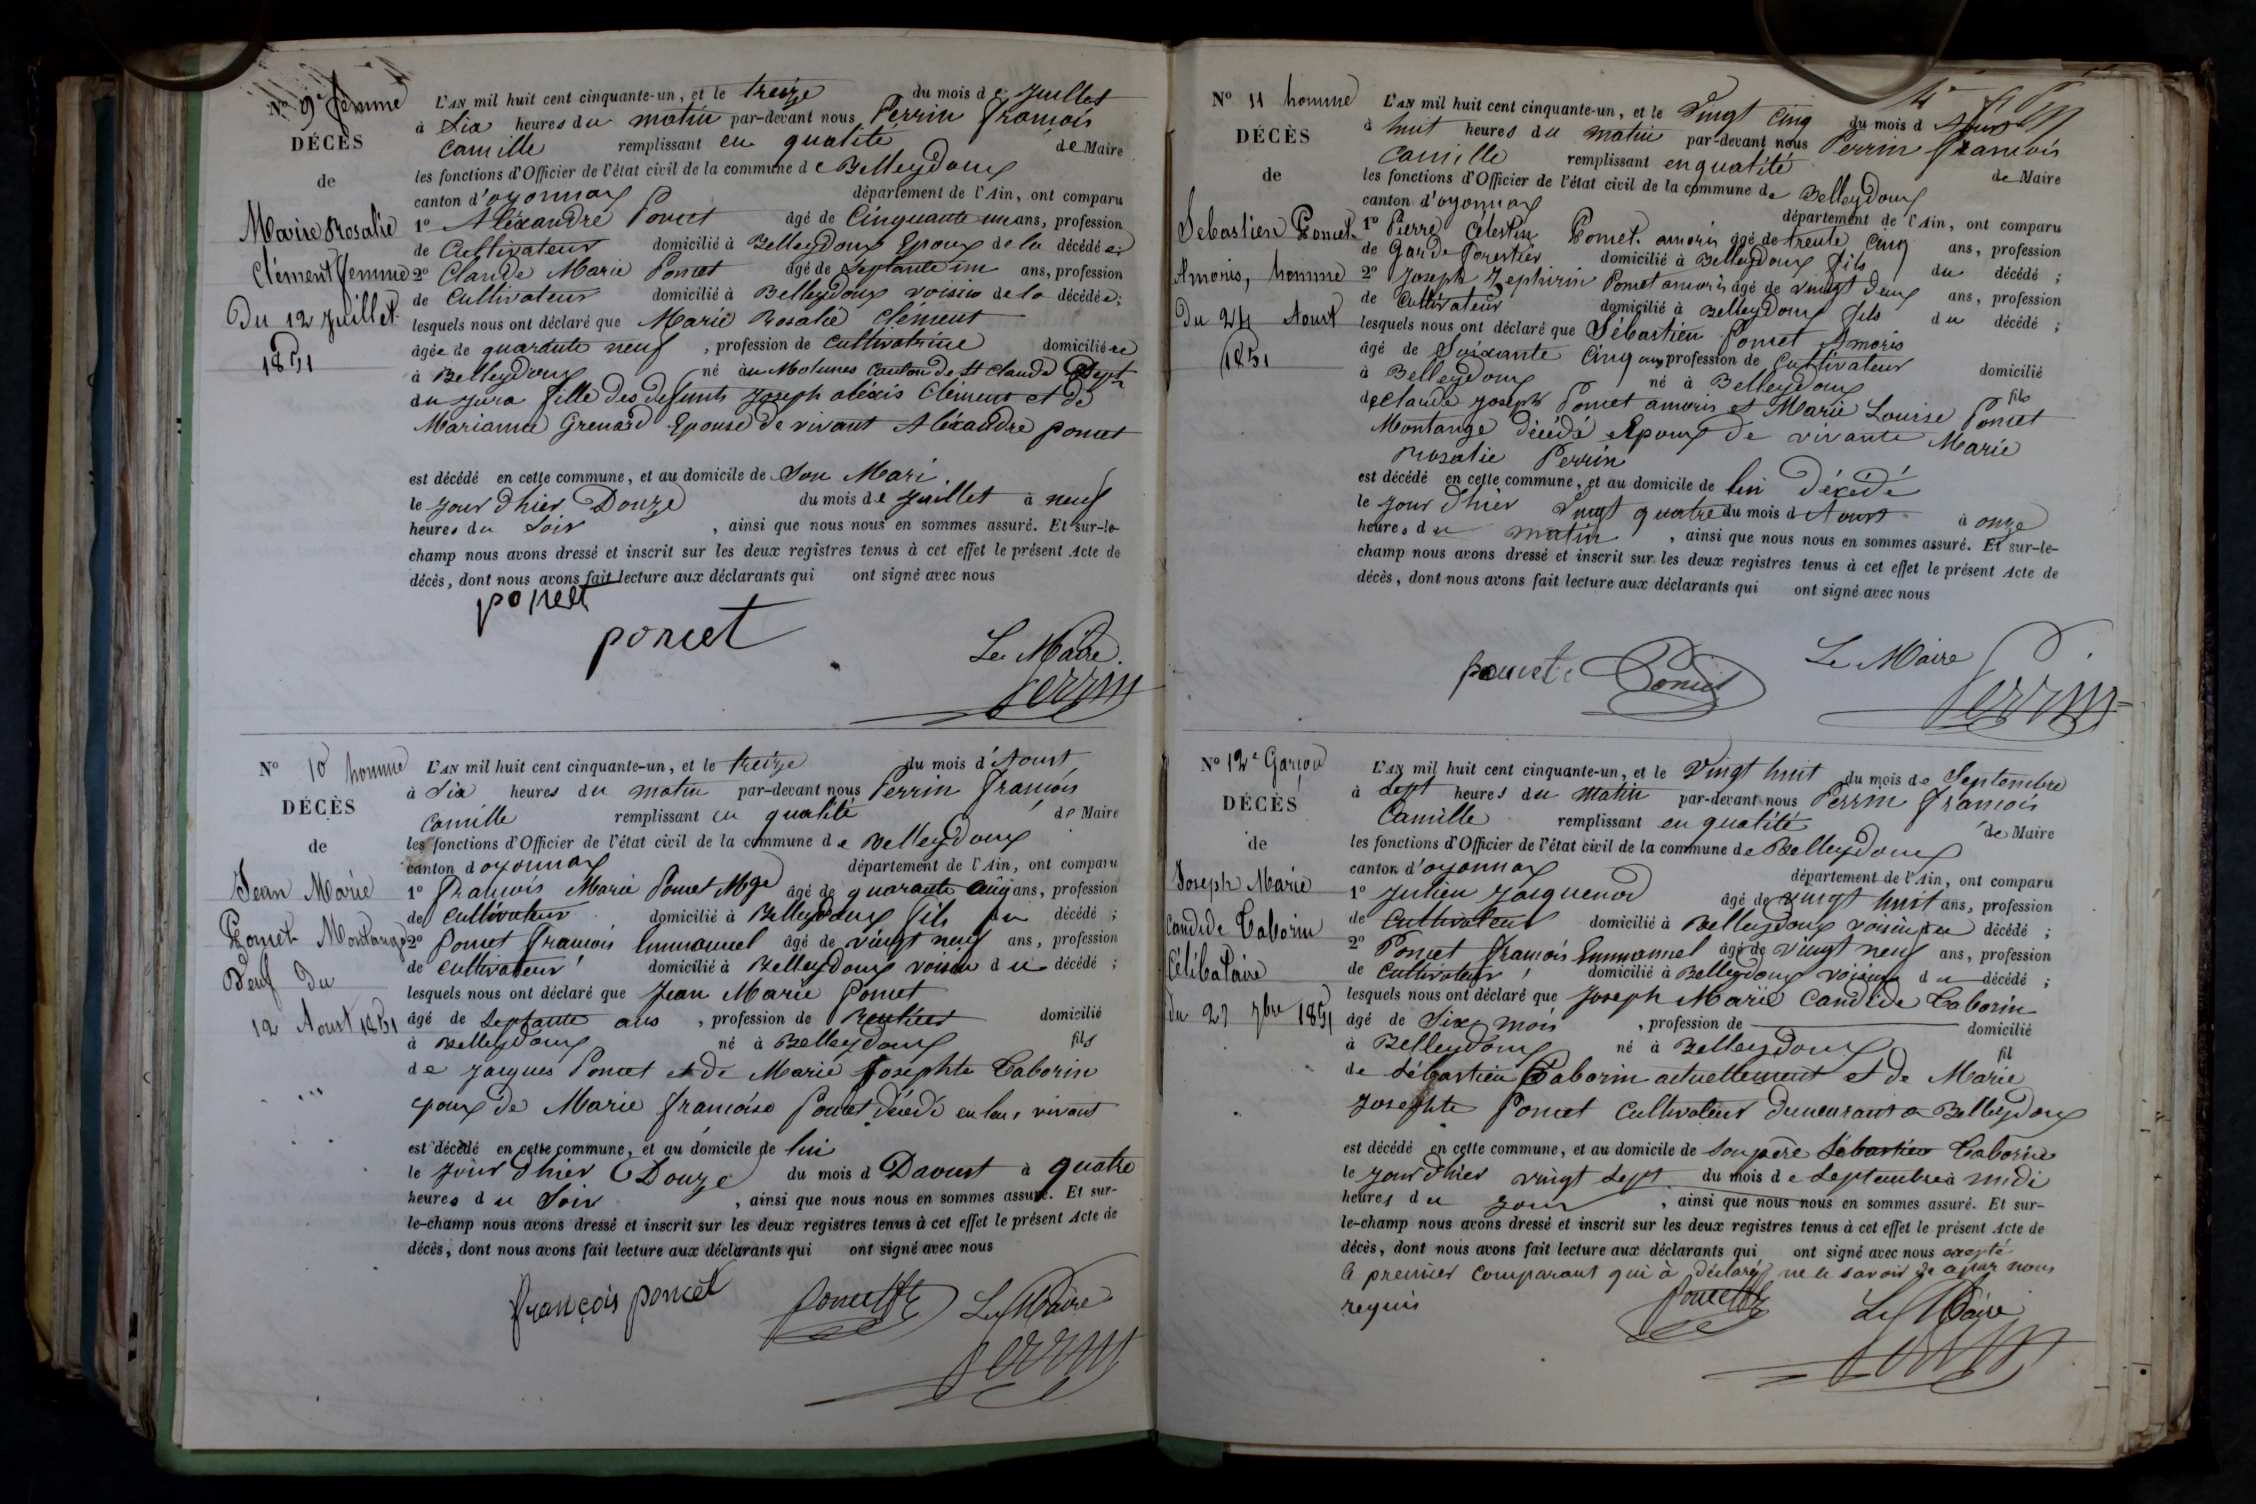 No 9e femme
DÉCÈS
de
Marie Rosalie
Clément femme
Du 12 Juillet
1851
L'AN mil huit cent cinquante-un, et le treize du mois de Juillet
à Six heures du matin par-devant nous Perrin François
Camille remplissant en qualité de Maire
les fonctions d'Officier de l'état civil de la commune de Belleydoux
canton d'oyonnax département de l'Ain, ont comparu
1o Aléxandre Poncet âgé de Cinquante un ans, profession
de Cultivateur domicilié à Belleydoux Epoux de la décédée;
2o Claude Marie Poncet âgé de Septante un ans, profession
de Cultivateur domicilié à Belleydoux voisin de la décédée;
lesquels nous ont déclaré que Marie Rosalie Clément
âgée de quarante neuf , profession de Cultivatrice domiciliée
à Belleydoux né au Molunes Canton de St Claude Dept
du Jura fille des defunts Joseph aléxis Clément et de
Marianne Grenard Epouse de vivant Aléxandre poncet
est décédé en cette commune, et au domicile de Son Mari
le jour d'hier Douze du mois de Juillet à neuf
heures du Soir , ainsi que nous nous en sommes assuré. Et sur-le-
champ nous avons dressé et inscrit sur les deux registres tenus à cet effet le présent Acte de
décès, dont nous avons fait lecture aux déclarants qui ont signé avec nous
poncet
poncet
Le Maire
Perrin
No 10 homme
DÉCÈS
de
Jean Marie
Poncet Montange
Veuf Du
12 Aoust 1851
L'AN mil huit cent cinquante-un, et le treize du mois d'Aoust
à Six heures du matin par-devant nous Perrin François
Camille remplissant en qualité de Maire
les fonctions d'Officier de l'état civil de la commune de Belleydoux
canton d'oyonnax département de l'Ain, ont comparu
1o François Marie Poncet Mge âgé de quarante cinq ans, profession
de Cultivateur domicilié à Belleydoux fils du décédé;
2o Poncet François Emmanuel âgé de vingt neuf ans, profession
de cultivateur domicilié à Belleydoux voisin du décédé;
lesquels nous ont déclaré que Jean Marie Poncet
âgé de Septante ans , profession de Rentier domicilié
à Belleydoux né à Belleydoux fils
de Jacques Poncet et de Marie Josephte Taborin
epoux de Marie françoise Poncet décédé en leur vivant
est décédé en cette commune, et au domicile de lui
le jour d'hier Douze du mois d Daoust à quatre
heures du Soir , ainsi que nous nous en sommes assuré. Et sur-
le-champ nous avons dressé et inscrit sur les deux registres tenus à cet effet le présent Acte de
décès, dont nous avons fait lecture aux déclarants qui ont signé avec nous
françois poncet Poncet Le Maire
Perrin
No 11 homme
DÉCÈS
de
Sebastien Poncet
Amoris, homme
Du 24 Aoust
1851
L'AN mil huit cent cinquante-un, et le Vingt cinq du mois d Aoust
à huit heures du matin par-devant nous Perrin François
Camille remplissant en qualité de Maire
les fonctions d'Officier de l'état civil de la commune de Belleydoux
canton d'oyonnax département de l'Ain, ont comparu
1o Pierre Célestin Poncet amoris âgé de trente cinq ans, profession
de Garde forestier domicilié à Belleydoux fils du décédé;
2o Joseph Zephirin Poncet amoris âgé de vingt deux ans, profession
de Cultivateur domicilié à Belleydoux fils du décédé;
lesquels nous ont déclaré que Sébastien Poncet Amoris
âgé de Soixante Cinq ans profession de Cultivateur domicilié
à Belleydoux né à Belleydoux fils
de Claude Joseph Poncet amoris et Marie Louise Poncet
Montange décédé Epoux de vivante Marie
Rosalie Perrin
est décédé en cette commune, et au domicile de lui Décédé
le jour d'hier Vingt quatre du mois d Aoust à onze
heures du matin , ainsi que nous nous en sommes assuré. Et sur-le-
champ nous avons dressé et inscrit sur les deux registres tenus à cet effet le présent Acte de
décès, dont nous avons fait lecture aux déclarants qui ont signé avec nous
poncet Poncet Le Maire
Perrin
No 12e Garçon
DÉCÈS
de
Joseph Marie
Candide Taborin
Célibataire
du 27 7bre 1851
L'AN mil huit cent cinquante-un, et le Vingt huit du mois de Septembre
à Sept heures du matin par-devant nous Perrin François
Camille remplissant en qualité de Maire
les fonctions d'Officier de l'état civil de la commune de Belleydoux
canton d'oyonnax département de l'Ain, ont comparu
1o Julien Jacquenod âgé de vingt huit ans, profession
de Cultivateur domicilié à Belleydoux voisin du décédé;
2o Poncet François Emmanuel âgé de vingt neuf ans, profession
de Cultivateur domicilié à Belleydoux voisin du décédé;
lesquels nous ont déclaré que Joseph Marie Candide Taborin
âgé de Six mois , profession de domicilié
à Belleydoux né à Belleydoux fil
de Sébastien Taborin actuellement et de Marie
Josephte Poncet Cultivateur demeurant a Belleydoux
est décédé en cette commune, et au domicile de Son père Sébastien Taborin
le jour d'hier vingt Sept du mois de Septembre à midi
heures du jour , ainsi que nous nous en sommes assuré. Et sur-
le-champ nous avons dressé et inscrit sur les deux registres tenus à cet effet le présent Acte de
décès, dont nous avons fait lecture aux déclarants qui ont signé avec nous excepté
le premier Comparant qui à déclaré ne le savoir de a par nous
requis Poncet Le Maire
Perrin